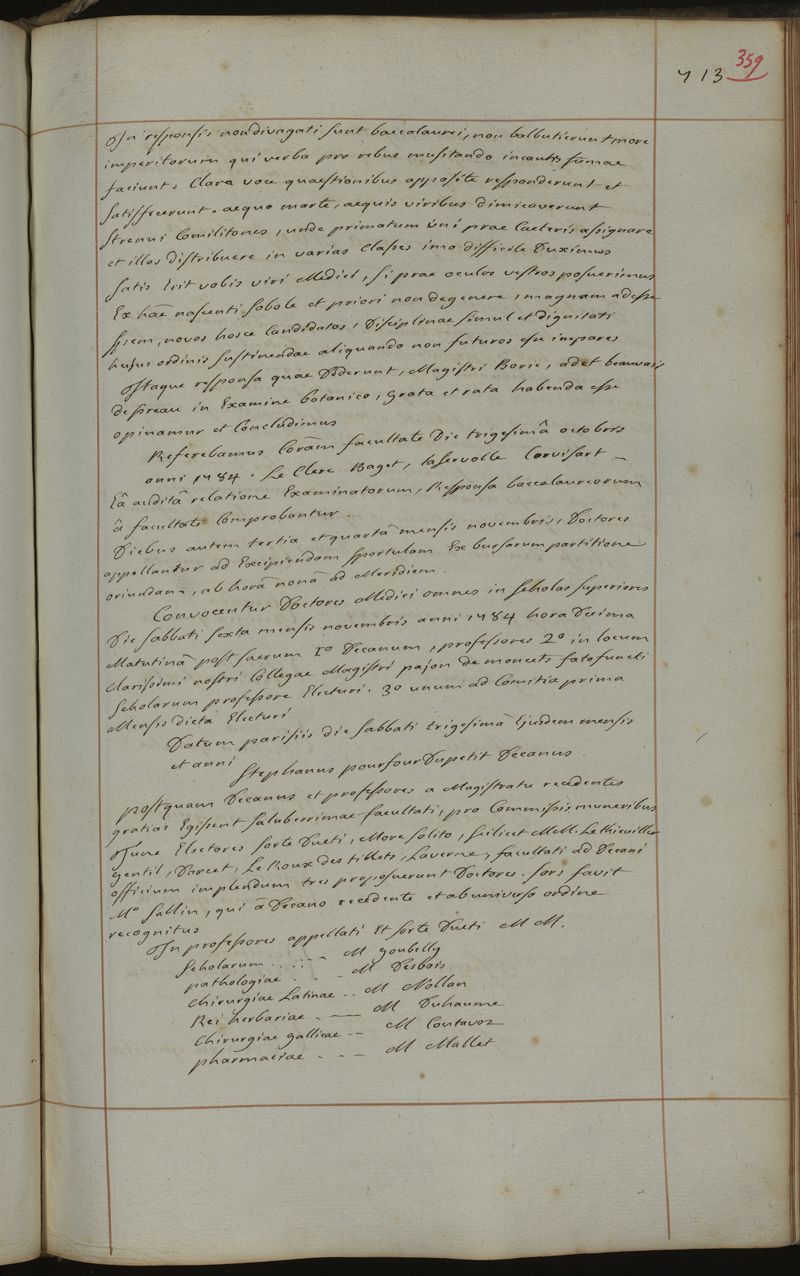 713 359
In responsis non divagati sunt baccalaurei, non balbutierunt more
imperitorum qui verba pro rebus musitando incautis fumae
faciunt. Clara voce quaestionibus apposite responderunt et
satisfecerunt. aequo marte, aequis viribus dimicaverunt
strenui Comilitones, unde primatum uni prae Caeteris assignare
et illos distribuere in varias Classes imo difficile Duximus
satis Erit vobis viri Medici, si prae oculos vestros posuerimus
Ex hâc nascenti sobole et priori non degenere, magnam adesse
spem, novos hosce Candidatos, Disciplinae simul et dignitati
hujus ordinis sustinendae aliquando non futuros esse impares
Itaque responsa quae Dederunt, Magistri Borie, adet beauvais
despreau in Examine botanico, grata et rata habenda esse
opinamur et Concludimus
Referebamus Coram facultate Die trigesimâ octobris
anni 1784. Le Clerc Baget, laservolle Corvisart
Eâ auditâ relatione Examinatorum, Responsa baccalaureorum
â facultate Comprobantur.
Diebus autem tertia et quartâ mensis novembris, Doctores
appellantur ad Excipiendam sportulam Ex bursarum partitione
oriundam, ab horâ nonâ ad Meridiem.
Convocentur Doctores Medici omnes in scholas superiores
Die sabbati sexta mensis novembris anni 1784 hora Decima
Matutinâ post sacrum 1º Decanum, professores 2º in locum
clarissimi nostri Collegae Magistri pajon De moncets fato functi
scholarum professore Electuri. 3º unum ad Comitia prima
Mensis dicta Electuri
Datum parisiis die sabbati trigesimâ Ejusdem mensis
et anni
Stephanus pourfour Dupetit Decanus.
postquam Decanus et professores a Magistratu recedentes
gratias Egissent saluberrimae facultati, pro Commissis muneribus
Tunc Electores sorte Ducti, More solito, scilicet MM. Lethieullier
gentil, Darcet, Le Roux des tillets, Laverne, facultati ad Decani
officium implendum tres proposuerunt Doctores. sors favit
Mº sallin, qui â Decano recedente et ab universo ordine
recognitus
In professores appellati Et sorte Ducti MM.
scholarum M goubelly
pathologiae M Desbois
chirurgiae Latinae M Nollan
Rei herbariae M Duhaume
chirurgiae gallicae M Coutavoz
pharmaciae M Mallet